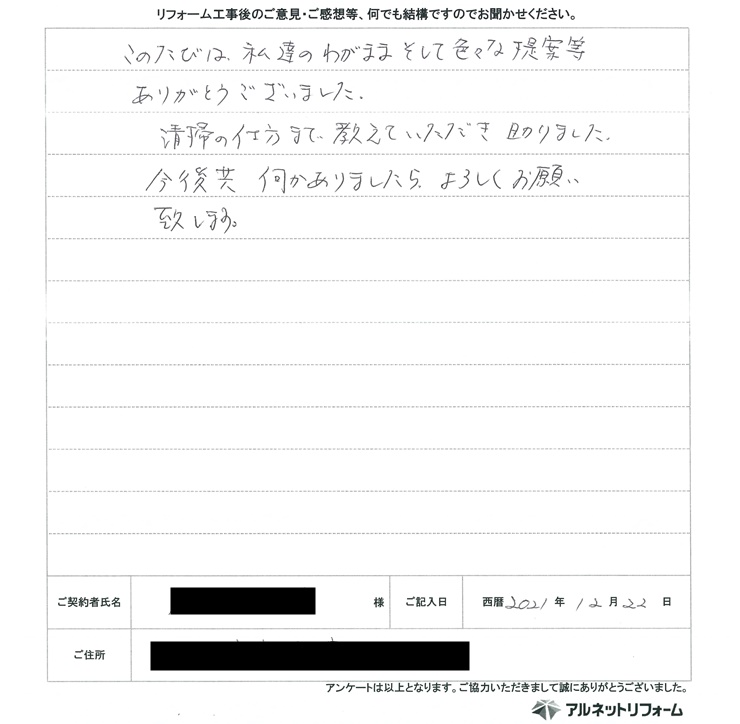 リフォーム工事後のご意見・ご感想等、何でも結構ですのでお聞かせください。
このたびは、私達のわがまま そして色々な提案等
ありがとうございました。
清掃の仕方まで教えていただき 助りました。
今後共 何かありましたら、よろしくお願い
致します。
ご契約者氏名 様 ご記入日 西暦 2021 年 12 月 22 日
ご住所
アンケートは以上となります。ご協力いただきまして誠にありがとうございました。
アルネットリフォーム